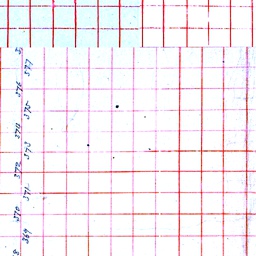 377
376
375
374
373
372
371
370
369